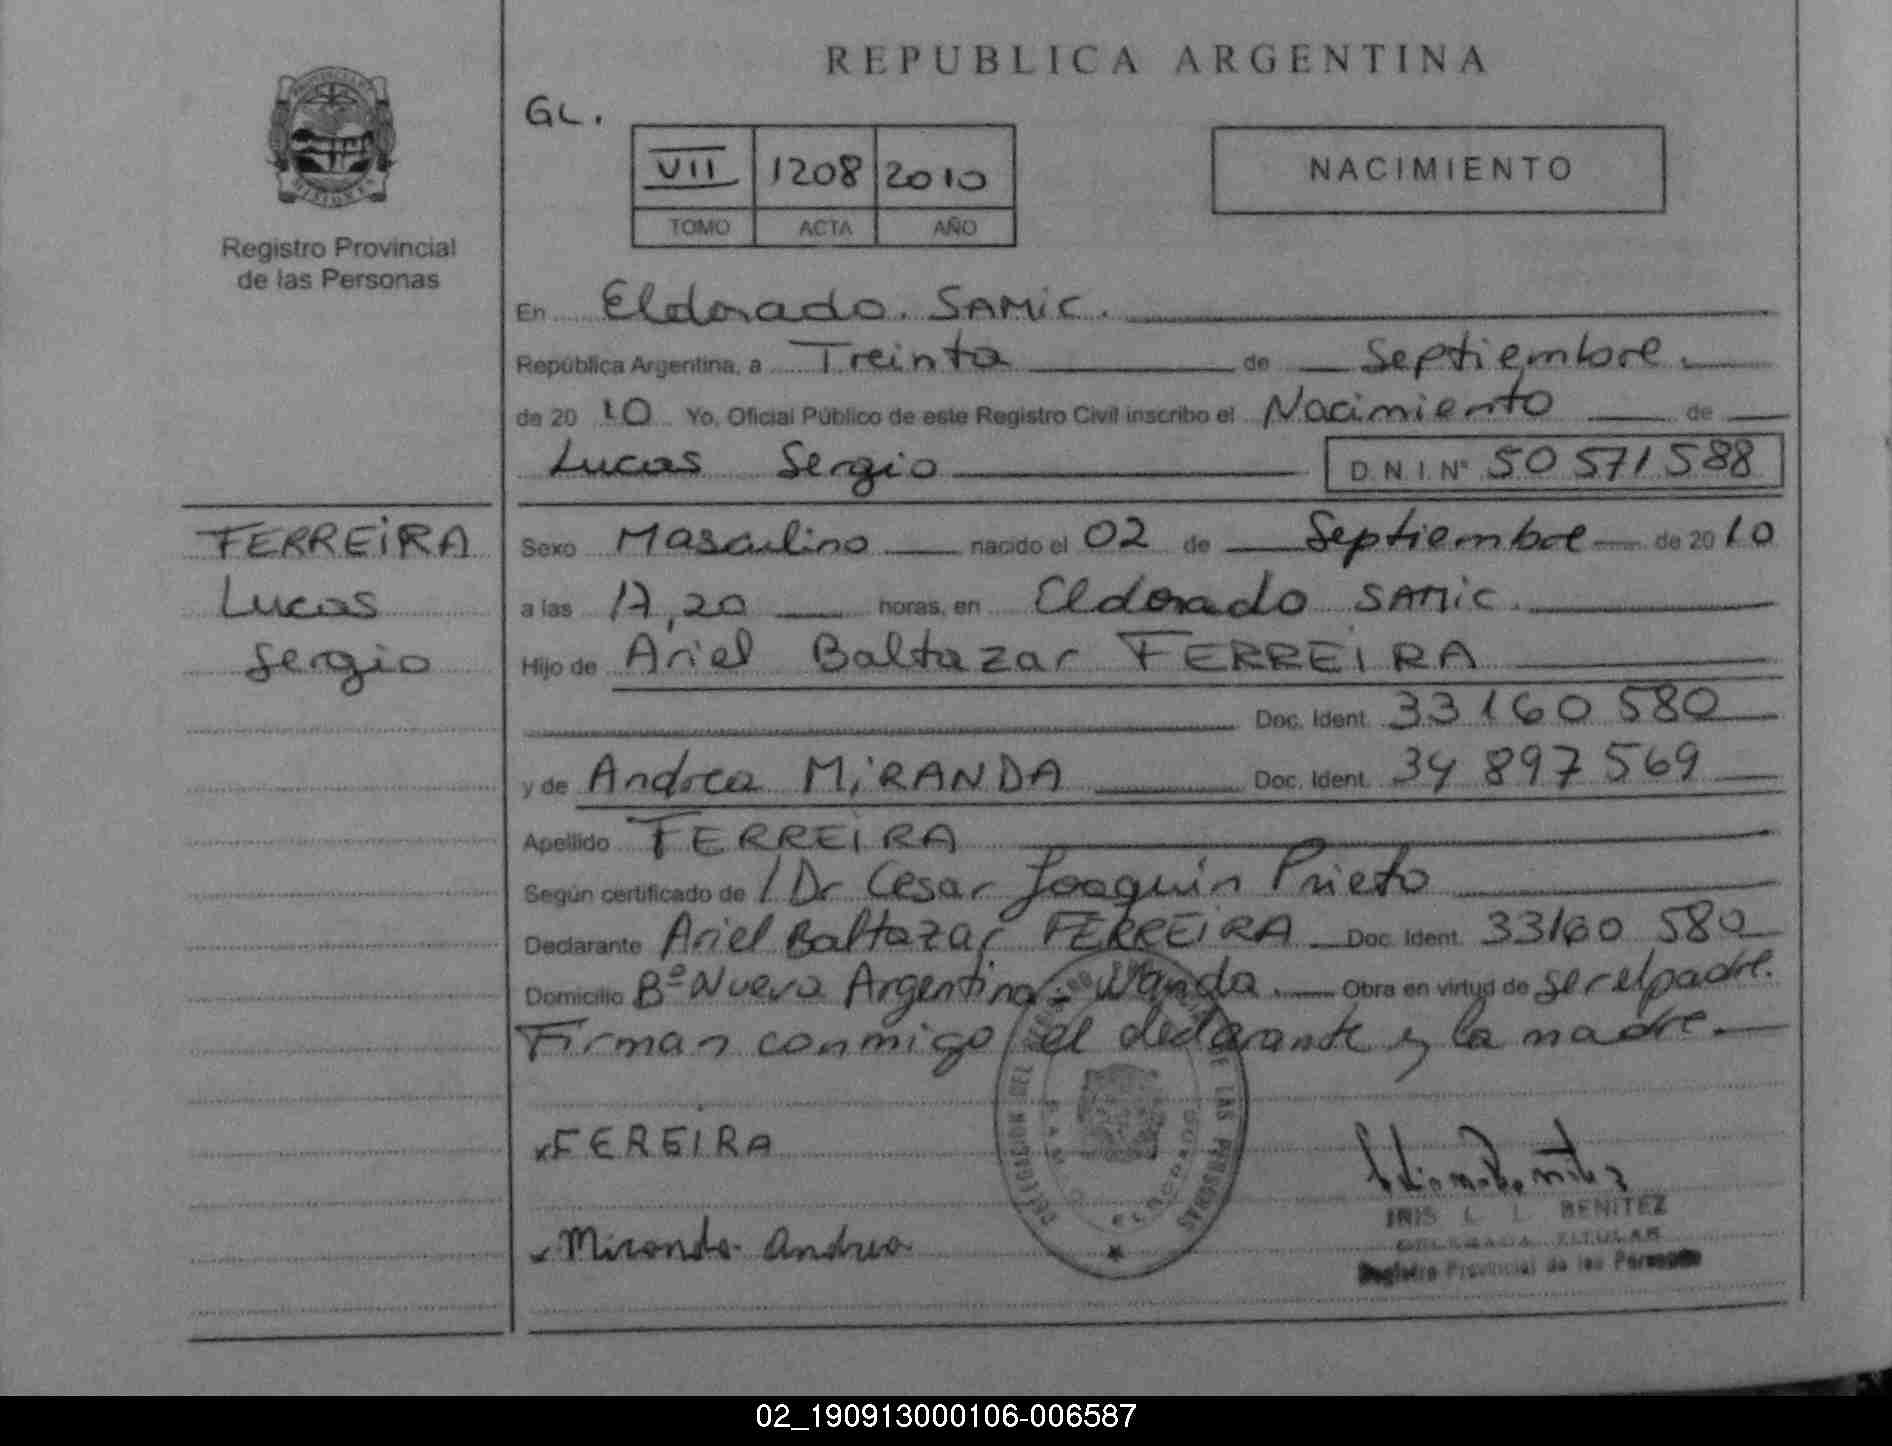 REPUBLICA ARGENTINA
GL.
VII 1208 2010
TOMO ACTA AÑO
NACIMIENTO
Registro Provincial
de las Personas
En Eldorado. SAMIC.
República Argentina, a Treinta de Septiembre.
de 20 10 Yo, Oficial Público de este Registro Civil inscribo el Nacimiento de
Lucas Sergio D.N.I. Nº 50 571 588
FERREIRA
Lucas
Sergio
Sexo Masculino nacido el 02 de Septiembre de 20 10
a las 17,20 horas, en Eldorado SAMIC.
Hijo de Ariel Baltazar FERREIRA
Doc. Ident. 33 160 580
y de Andrea MIRANDA Doc. Ident. 34 897 569
Apellido FERREIRA
Según certificado de / Dr Cesar Joaquin Prieto
Declarante Ariel Baltazar FERREIRA Doc. Ident. 33160 580
Domicilio Bº Nueva Argentina - Wanda. Obra en virtud de ser el padre.
Firman conmigo el declarante y la madre.
x FEREIRA
x Miranda Andrea
DELEGACION DEL REGISTRO PROVINCIAL DE LAS PERSONAS
S.A.M.I.C. ELDORADO
IRIS L. L. BENITEZ
DELEGADA TITULAR
Registro Provincial de las Personas
PROVINCIA DE
MISIONES
02_190913000106-006587